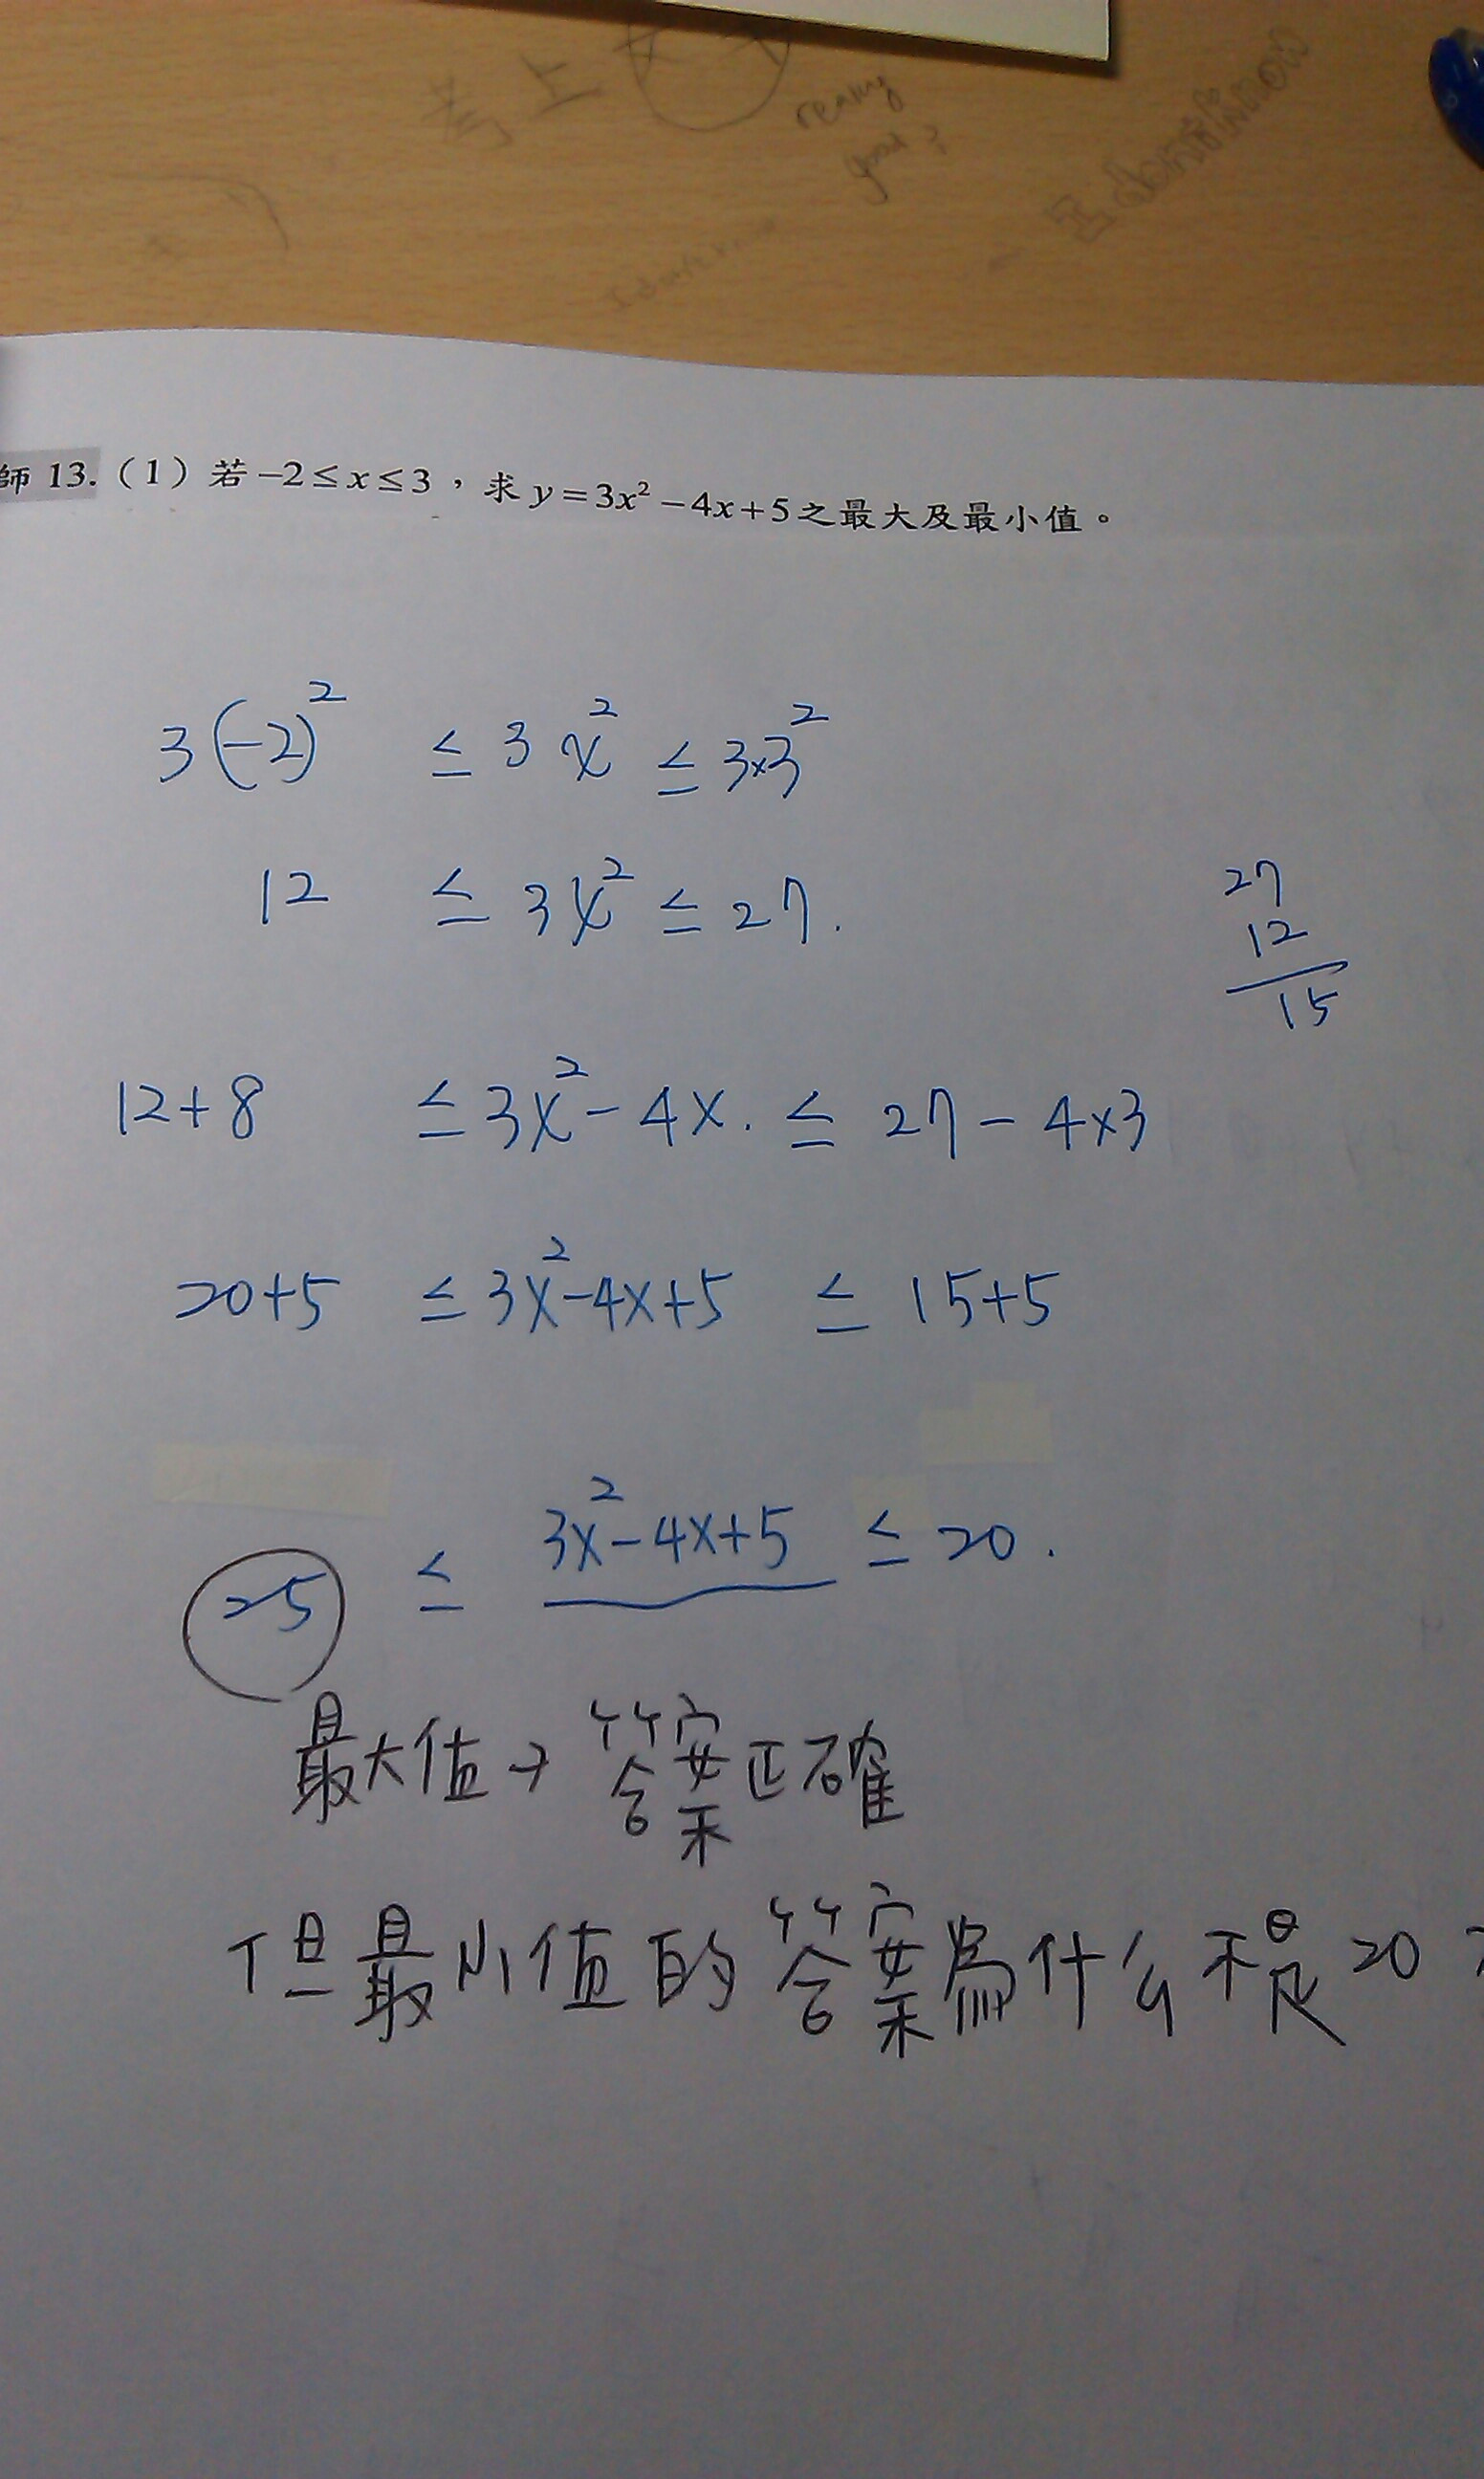 考上
really
good?
師 13.（1）若 −2 ≤ x ≤ 3，求 y = 3x² − 4x + 5 之最大及最小值。
3(−2)² ≤ 3x² ≤ 3×3²
12 ≤ 3x² ≤ 27.
27
12
15
12+8 ≤ 3x² − 4x. ≤ 27 − 4×3
20+5 ≤ 3x²−4x+5 ≤ 15+5
25 ≤ 3x²−4x+5 ≤ 20.
最大值→答案正確
但最小值的答案為什么不是20?